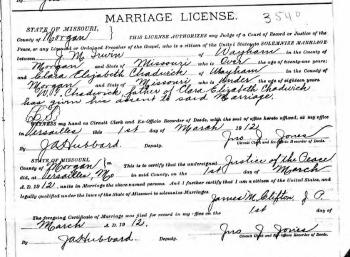 MARRIAGE LICENSE.
3540
STATE OF MISSOURI,
County of Morgan
THIS LICENSE AUTHORIZES any Judge of a Court of Record or Justice of the
Peace, or any Licensed or Ordained Preacher of the Gospel, who is a citizen of the United States, TO SOLEMNIZE MARRIAGE
between J. M. Irwin of in the County of
Morgan and State of Missouri who is Over the age of twenty-one years; and
Clara Elizabeth Chadwick of in the County of
Morgan and State of Missouri who is Under the age of eighteen years
W. P. Chadwick, father of Clara Elizabeth Chadwick
has given his assent to said Marriage.
WITNESS my hand as Circuit Clerk and Ex-Officio Recorder of Deeds, with the seal of office hereto affixed, at my office in
Versailles this 1st day of March 1912.
J A Hubbard Deputy. Jno. J. Jones
Circuit Clerk and Ex-Officio Recorder of Deeds.
STATE OF MISSOURI,
County of Morgan
This is to certify that the undersigned Justice of the Peace
did, at Versailles, Mo in said County, this 1st day of March
A. D. 1912, unite in Marriage the above-named persons. And I further certify that I am a citizen of the United States, and
legally qualified under the laws of the State of Missouri to solemnize Marriages.
James M. Clifton J. P.
The foregoing Certificate of Marriage was filed for record in my office on the 1st day of
March A. D. 1912.
J A Hubbard Deputy. Jno. J. Jones
Circuit Clerk and Ex-Officio Recorder of Deeds.